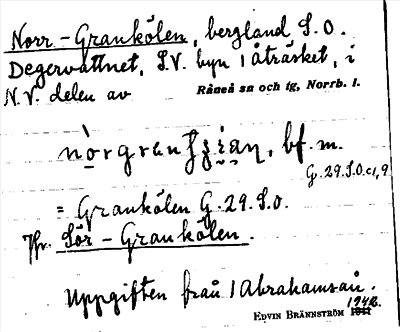 Norr-Grankölen, bergland S.O.
Degervattnet, S.V. byn 1 Åträsket, i
N.V. delen av Råneå sn och tg, Norrb. l.
bf. m.
G. 29.S.O.c1,9
= Grankölen G.29.S.o.
Jfr. Sör-Grankölen.
Uppgiften från 1 Abrahamsson.
1942.
EDVIN BRÄNNSTRÖM